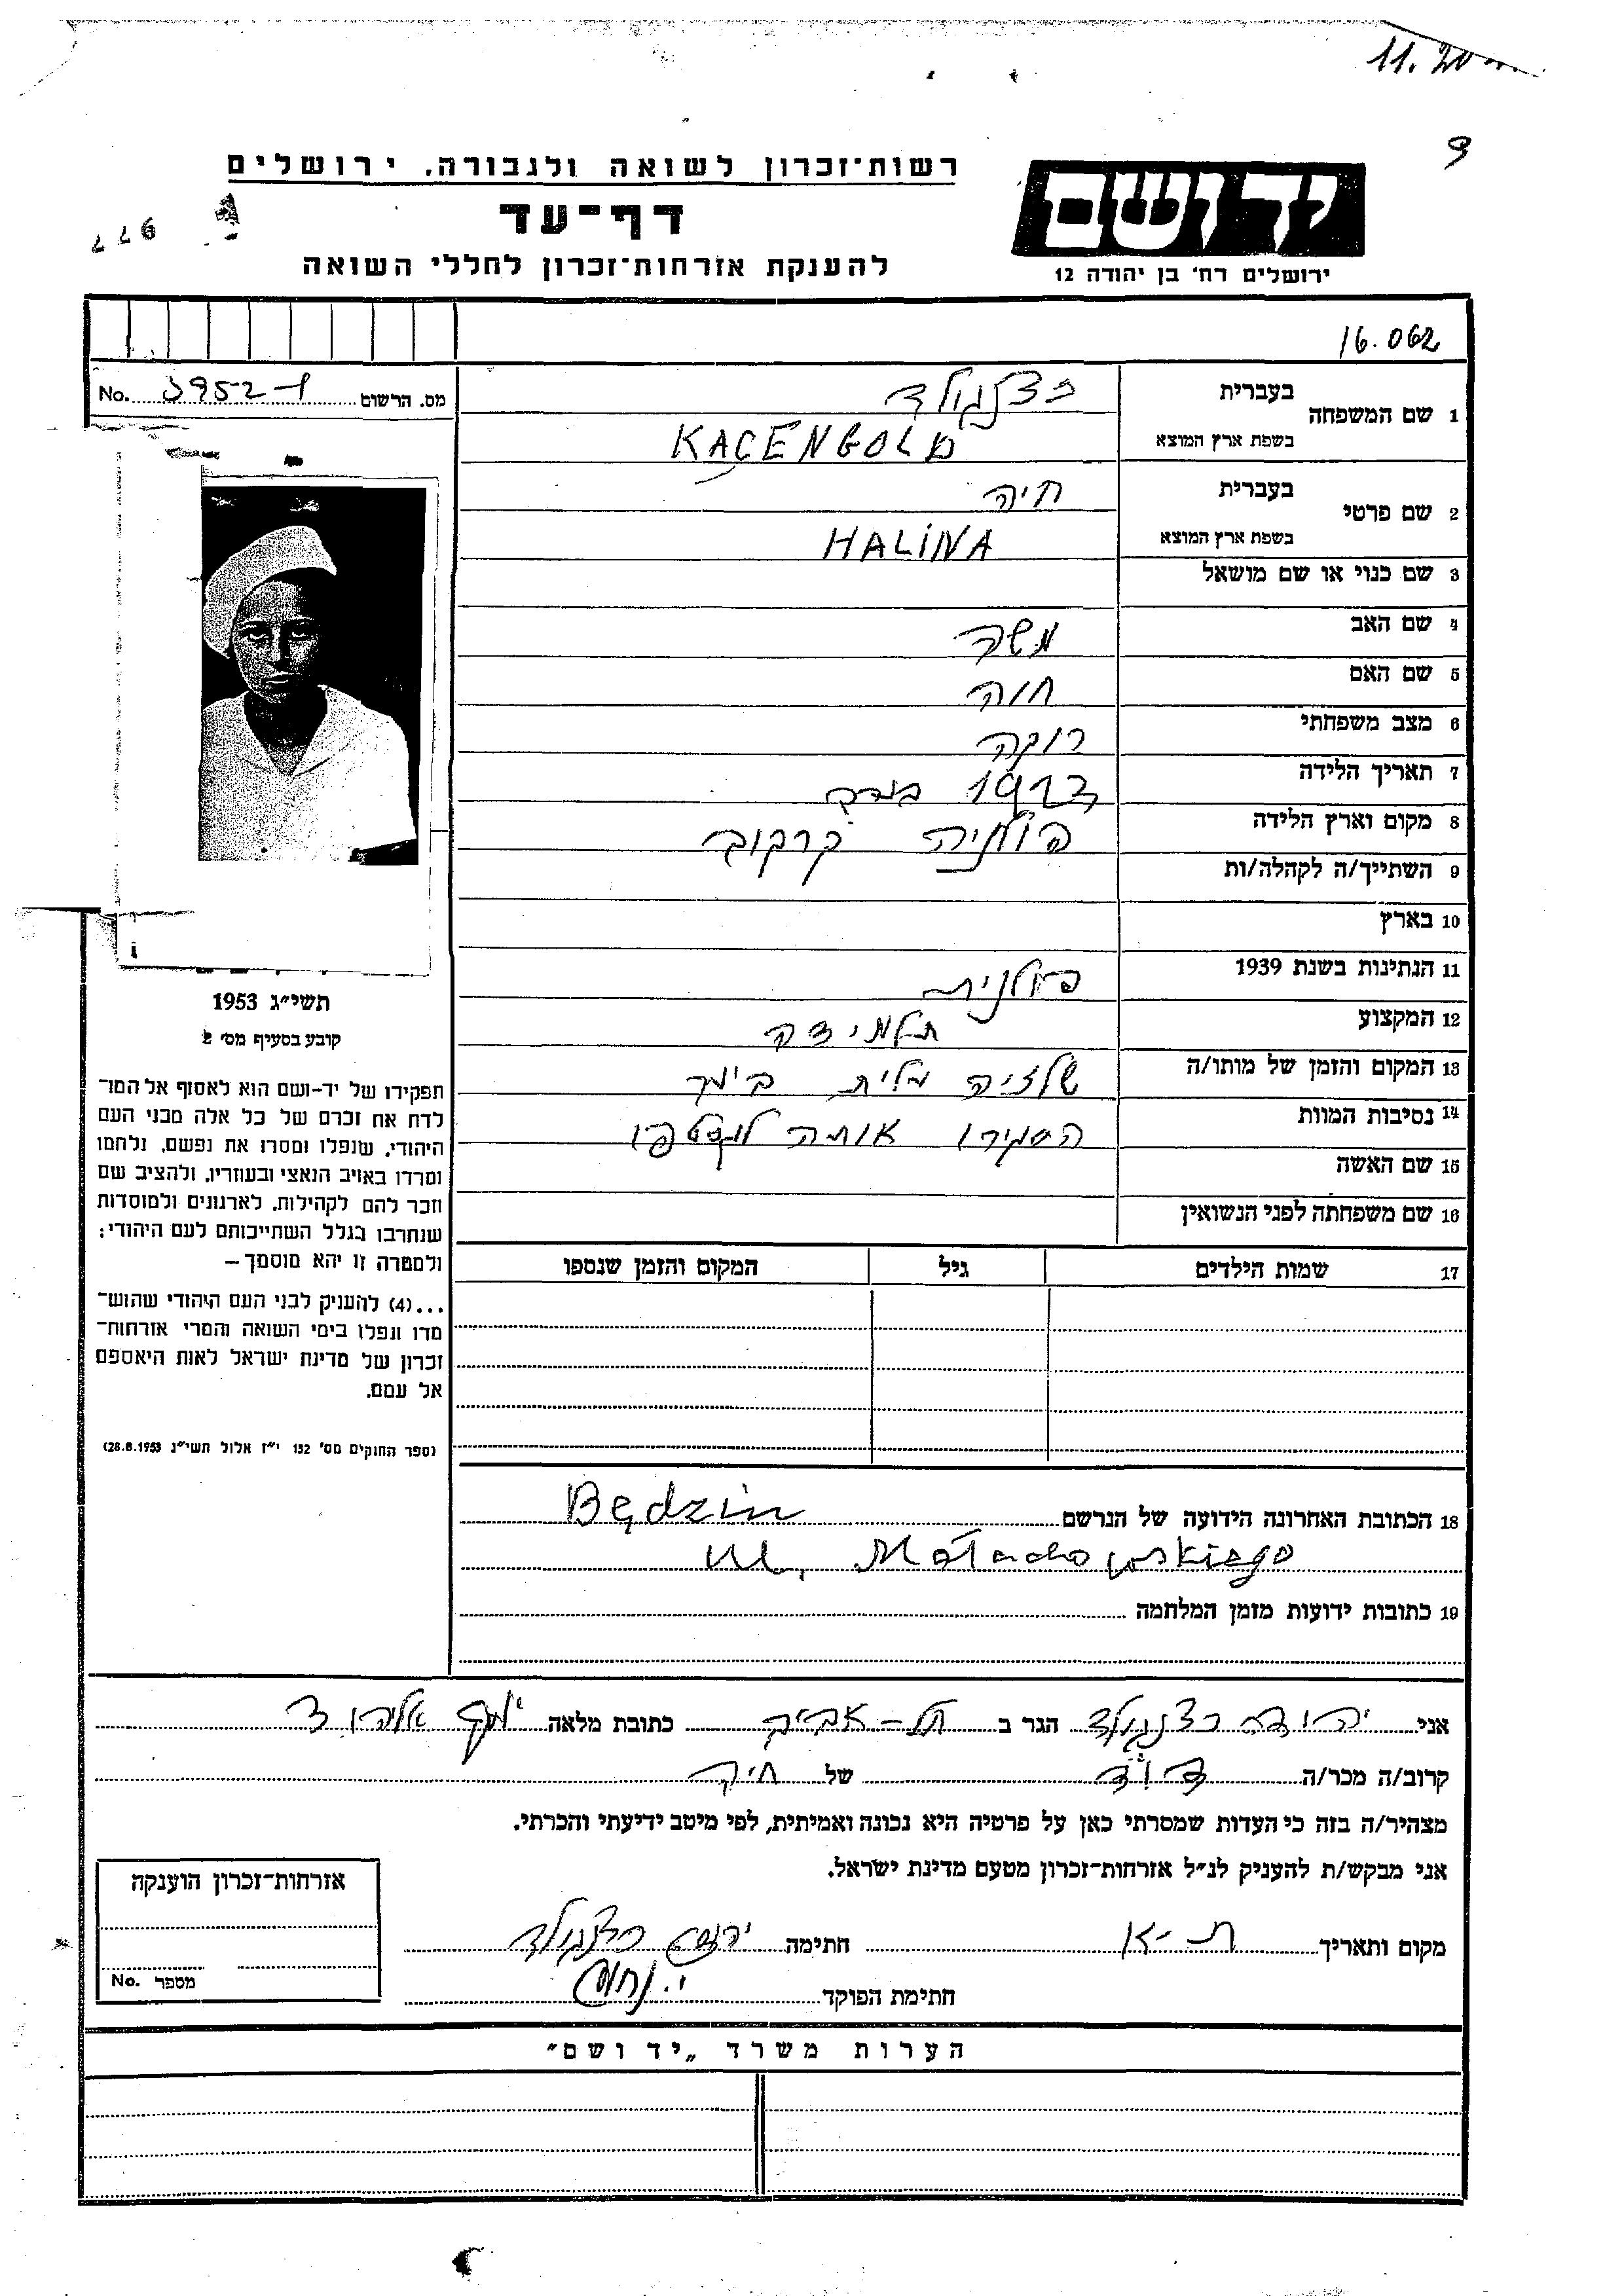 11.20
9
רשות־זכרון לשואה ולגבורה. ירושלים
דף־עד
להענקת אזרחות־זכרון לחללי השואה
977
יד ושם
ירושלים רח' בן יהודה 12
16.062
מס. הרשום No.
1 שם המשפחה
בעברית כצנגולד
בשפת ארץ המוצא KACENGOLD
2 שם פרטי
בעברית חיה
בשפת ארץ המוצא HALINA
3 שם כנוי או שם מושאל
4 שם האב משה
5 שם האם חוה
6 מצב משפחתי רוקה
7 תאריך הלידה
8 מקום וארץ הלידה פולניה קרקוב
9 השתייך/ה לקהלה/ות
10 בארץ
11 הנתינות בשנת 1939 פולנית
12 המקצוע תלמידה
13 המקום והזמן של מותו/ה שלזיה עלית
14 נסיבות המוות הסגירו אותה לגסטפו
15 שם האשה
16 שם משפחתה לפני הנשואין
17 שמות הילדים גיל המקום והזמן שנספו
תשי"ג 1953
קובע בסעיף מס' 2
תפקידו של יד-ושם הוא לאסוף אל המו־
לדת את זכרם של כל אלה מבני העם
היהודי, שנפלו ומסרו את נפשם, נלחמו
ומרדו באויב הנאצי ובעוזריו, ולהציב שם
וזכר להם לקהילות, לארגונים ולמוסדות
שנחרבו בגלל השתייכותם לעם היהודי:
ולמטרה זו יהא מוסמך –
...(4) להעניק לבני העם היהודי שהוש־
מדו ונפלו בימי השואה והמרי אזרחות־
זכרון של מדינת ישראל לאות היאספם
אל עמם.
(ספר החוקים מס' 132 י"ז אלול תשי"ג 28.8.1953)
18 הכתובת האחרונה הידועה של הנרשם Będzin
ul. Małachowskiego
19 כתובות ידועות מזמן המלחמה
אני יהודה כצנגולד הגר ב תל-אביב כתובת מלאה
קרוב/ה מכר/ה דוד של חיה
מצהיר/ה בזה כי העדות שמסרתי כאן על פרטיה היא נכונה ואמיתית, לפי מיטב ידיעתי והכרתי.
אני מבקש/ת להעניק לנ"ל אזרחות־זכרון מטעם מדינת ישראל.
מקום ותאריך ת-א חתימה יהודה כצנגולד
חתימת הפוקד
אזרחות־זכרון הוענקה
מספר No.
הערות משרד „יד ושם"